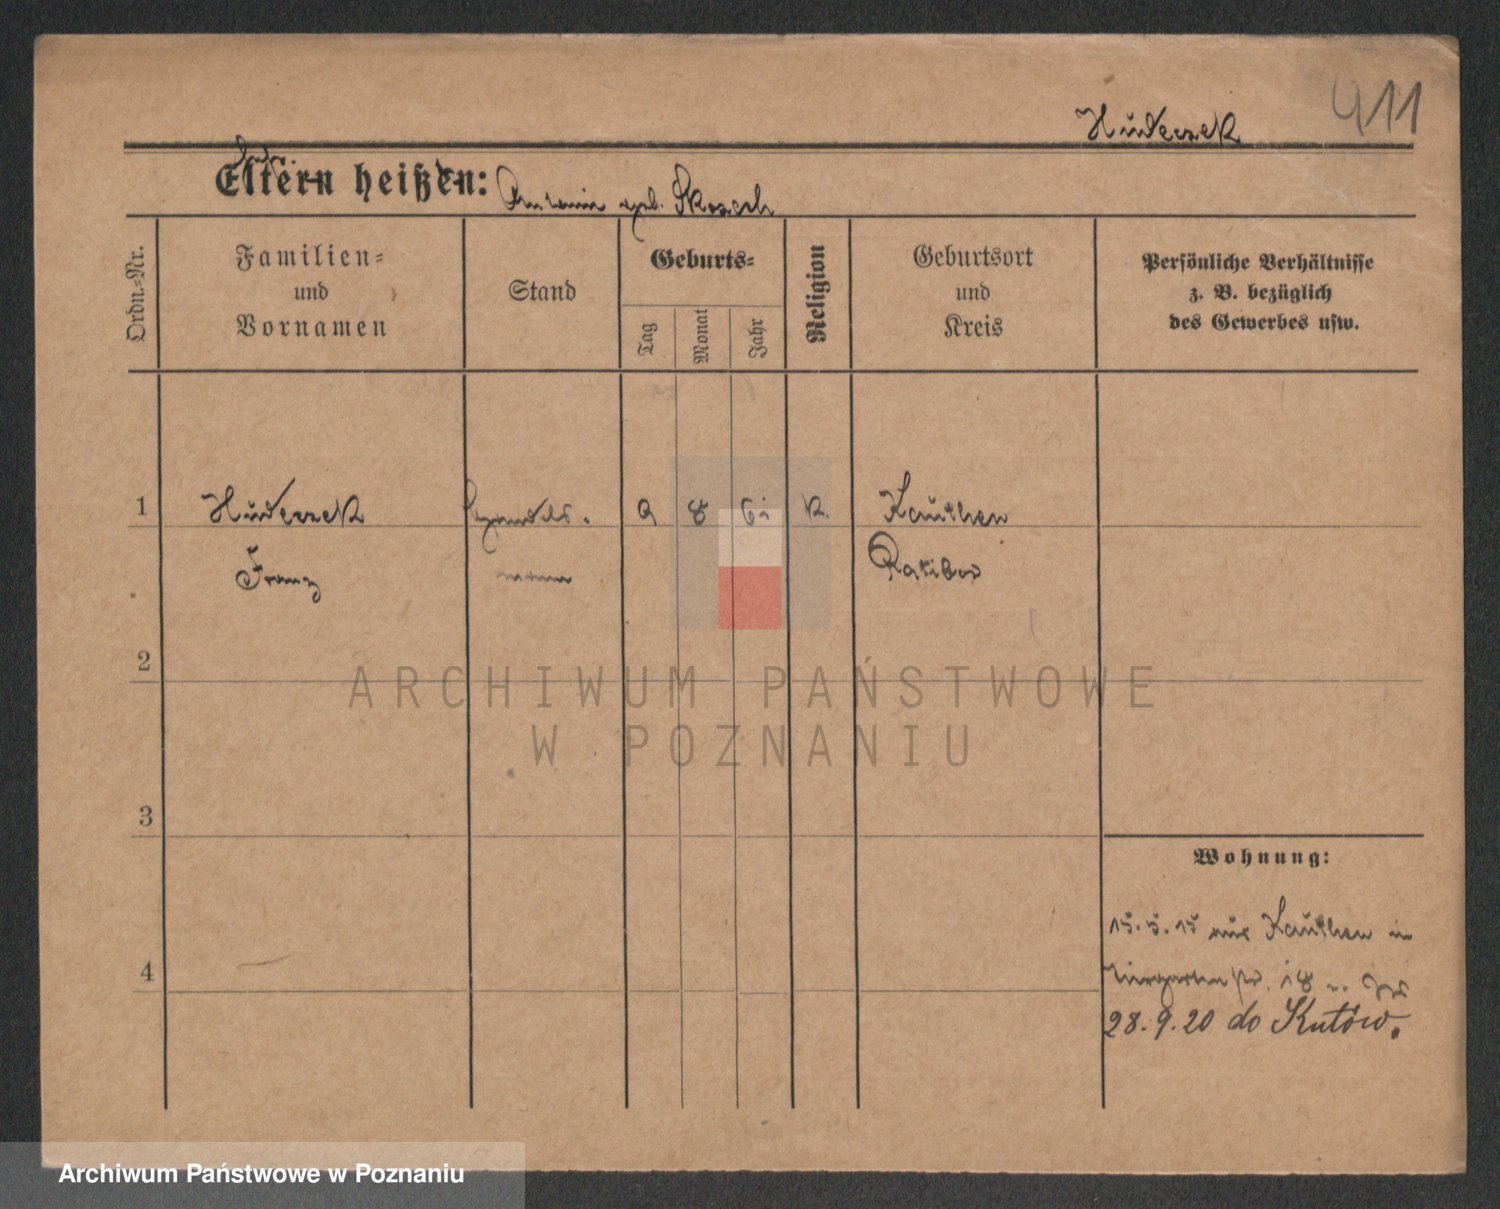 411
Huderzek
Eltern heißen:
geb.
Ordn.-Nr.
Familien-
und
Vornamen
Stand
Geburts-
Tag
Monat
Jahr
Religion
Geburtsort
und
Kreis
Persönliche Verhältnisse
z. B. bezüglich
des Gewerbes usw.
1 Huderzek Handels- 9 8 K. Kauthen
Franz mann Ratibor
2
3
4
Wohnung:
15.5.15 aus Kauthen in
18
28.9.20 do Kutów.
ARCHIWUM PAŃSTWOWE
W POZNANIU
Archiwum Państwowe w Poznaniu